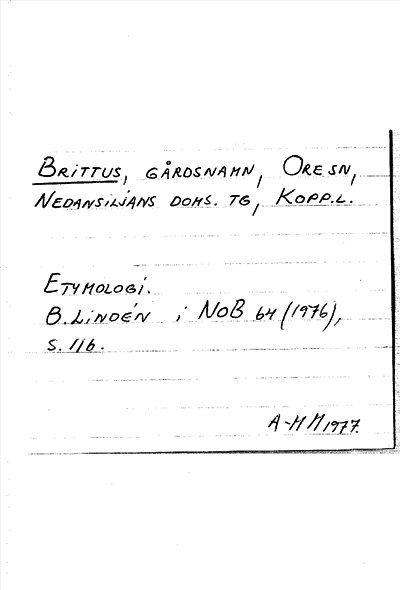 BRITTUS, GÅRDSNAMN, ORE SN,
NEDANSILJANS DOMS. TG, KOPP.L.
ETYMOLOGI.
B. LINDÉN i NoB 64 (1976),
S. 116.
A-M M 1977.